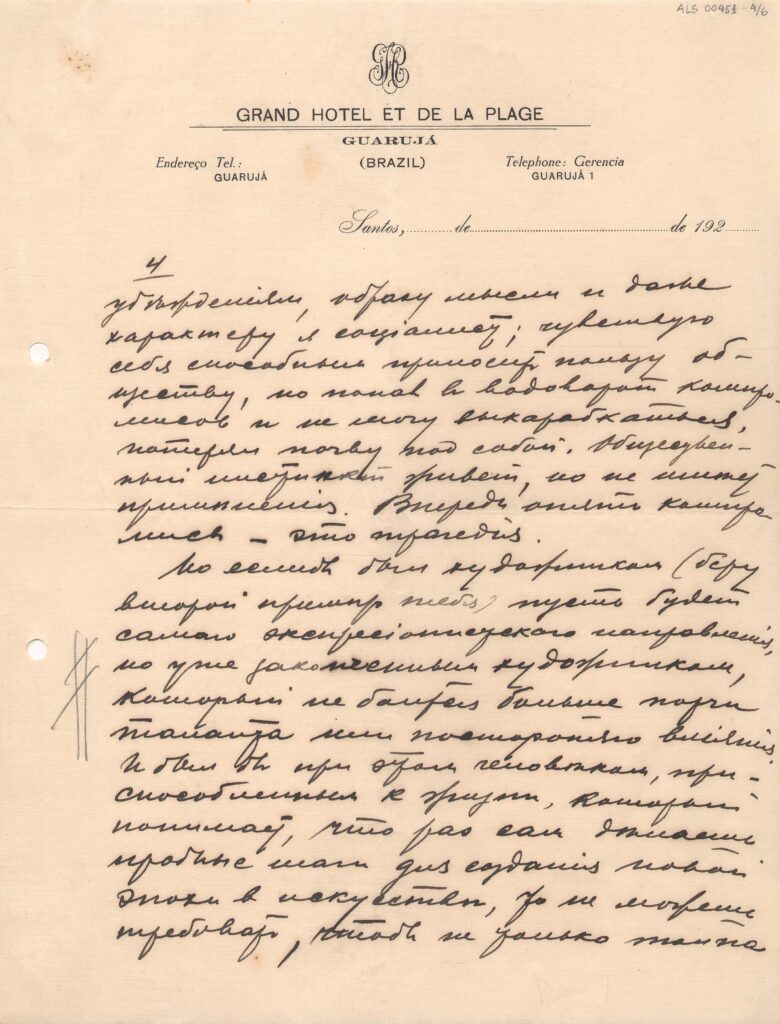 ALS 00451 - 4/6
GRAND HOTEL ET DE LA PLAGE
GUARUJÁ
(BRAZIL)
Endereço Tel.:
GUARUJÁ
Telephone: Gerencia
GUARUJÁ 1
Santos, de de 192
4
убѣжденіям, образу мысли и даже
характеру я соціалист; чувствую
себя способным приносить пользу об-
ществу, но попав в водоворот компро-
мисов и не могу выкарабкаться,
потерял почву под собой. Обществен-
ный инстинкт живет, но не имѣет
примѣненія. Впереди опять компро-
мисъ – это трагедія.
Но еслибъ был художником (беру
второй примѣр тебя) пусть будет
самаго экспресіонистскаго направленія,
но уже законченным художником,
который не боится больше порчи
таланта или посторонняго вліянія.
И был бы при этом человѣком, при-
способленным к жизни, который
понимает, что раз сам дѣлаешь
пробные шаги для созданія новой
эпохи в искусствѣ, то не можешь
требовать, чтобы не только толпа